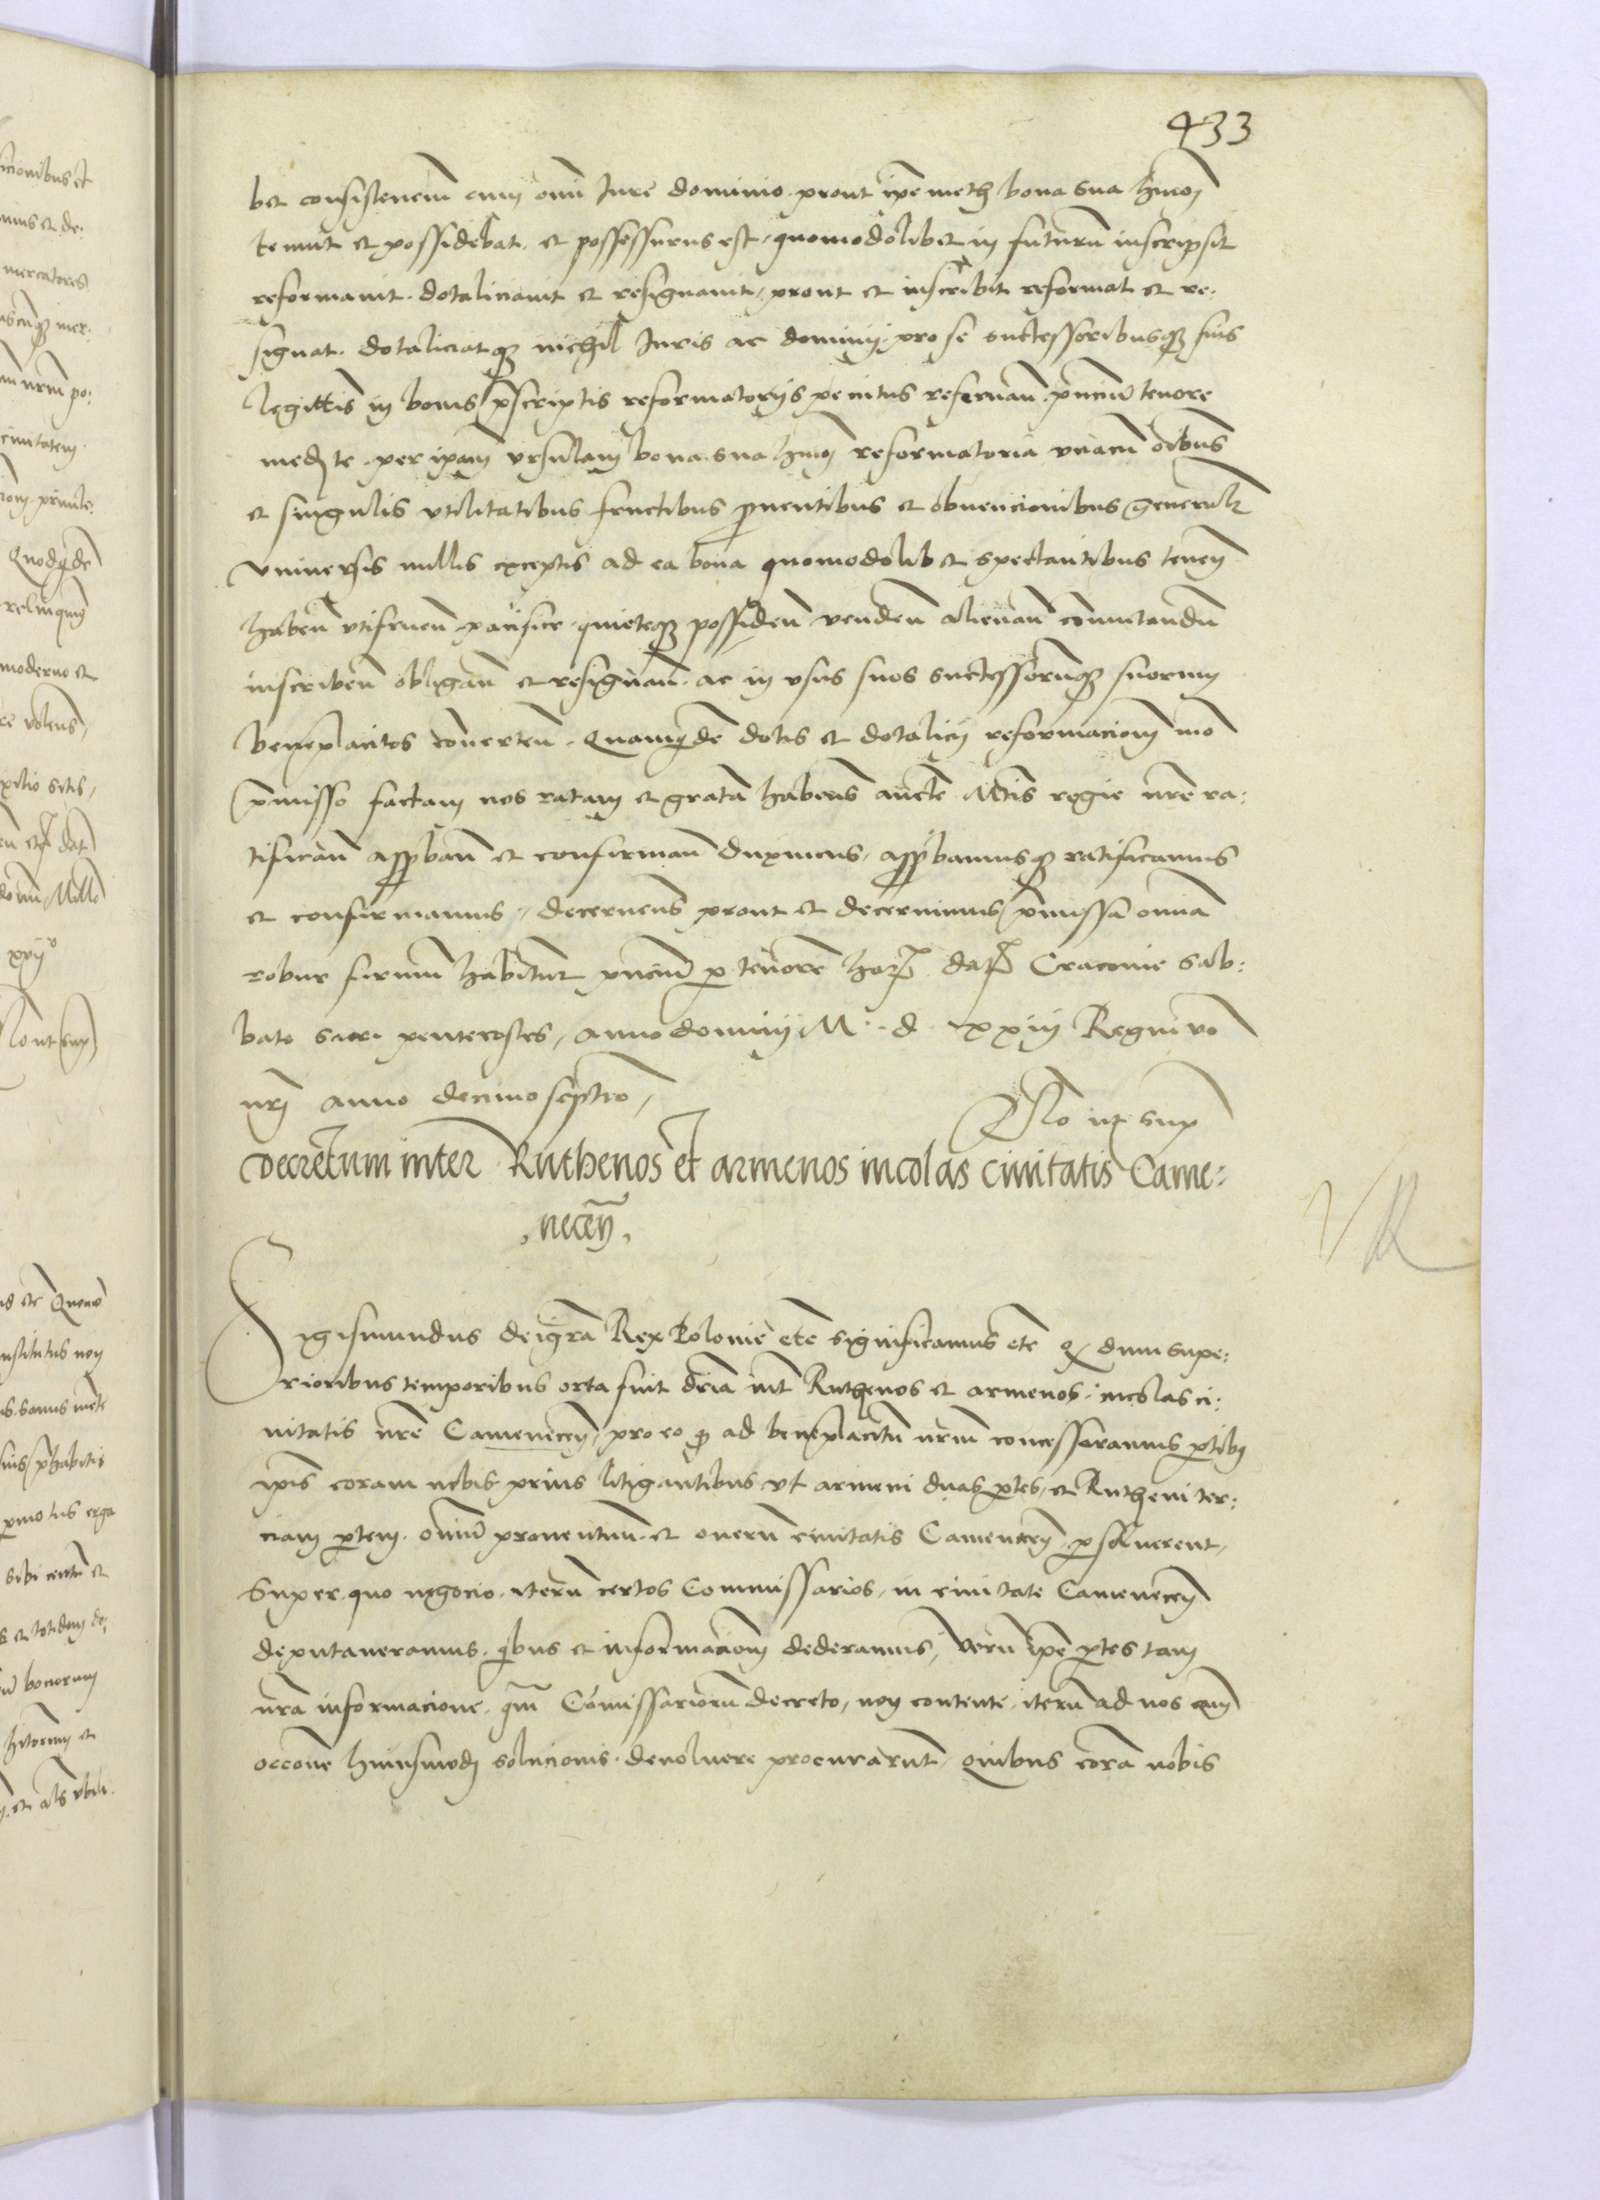 433
bet consistenciam cum omni Jure dominio prout ipse meth bona sua hmoi
tenuit et possidebat et possessurus est quomodolibet in futurum inscripsit
reformavit dotaliciavit et resignavit prout et inscribit reformat et re:
signat dotaliciatq nichil Juris ac dominij pro se successoribusq suis
legittis in bonis pscriptis reformatorijs penitus reservan pnciu tenore
medte per ipam ursulam bona sua hmoi reformatoria unacu oibus
et singulis utilitatibus fructibus pventibus et obvencionibus generalr
universis nullis exceptis ad ea bona quomodolibet spectantibus tenen
haben utifruen pacifice quieteq possiden venden alienan comutandu
inscriben obligan et resignan ac in usus suos successorumq suorum
beneplacitos converten Quamqde dotis et dotalicij reformacionem mo
pmisso factam nos ratam et grata habens aucte Mtis regie nre ra:
tifican appban et confirman duximus appbamusq ratificamus
et confirmamus decernens prout et decernimus pmissa omia
robur firmum habitur pnciu p tenore har dat Cracovie Sab:
bato sacr penterostes anno domini M d xxiij Regni vo
nri anno decimoseptio
Rlo ut sup
Decretum inter Ruthenos et armenos incolas civitatis Came:
necen
Sigismundus dei gra Rex Polonie etc significamus etc q dum supe:
rioribus temporibus orta fuit dria int Ruthenos et armenos incolas ci:
vitatis nre Camenecen pro eo q ad beneplacitu nrm concesseramus ptibus
ipis coram nobis prius litigantibus ut armeni duas ptes et Rutheni ter:
ciam ptem oim proventuum et oneru civitatis Camenecen psolverent
Super quo negocio iteru certos Commissarios in civitate Camenecen
deputaveramus qbus et informacionem dederamus veru ipe ptes tam
nra informacione qm Comissarioru decreto non contente iteru ad nos cam
occone huiusmodi solucionis devolvere procurarut Quibus cora nobis